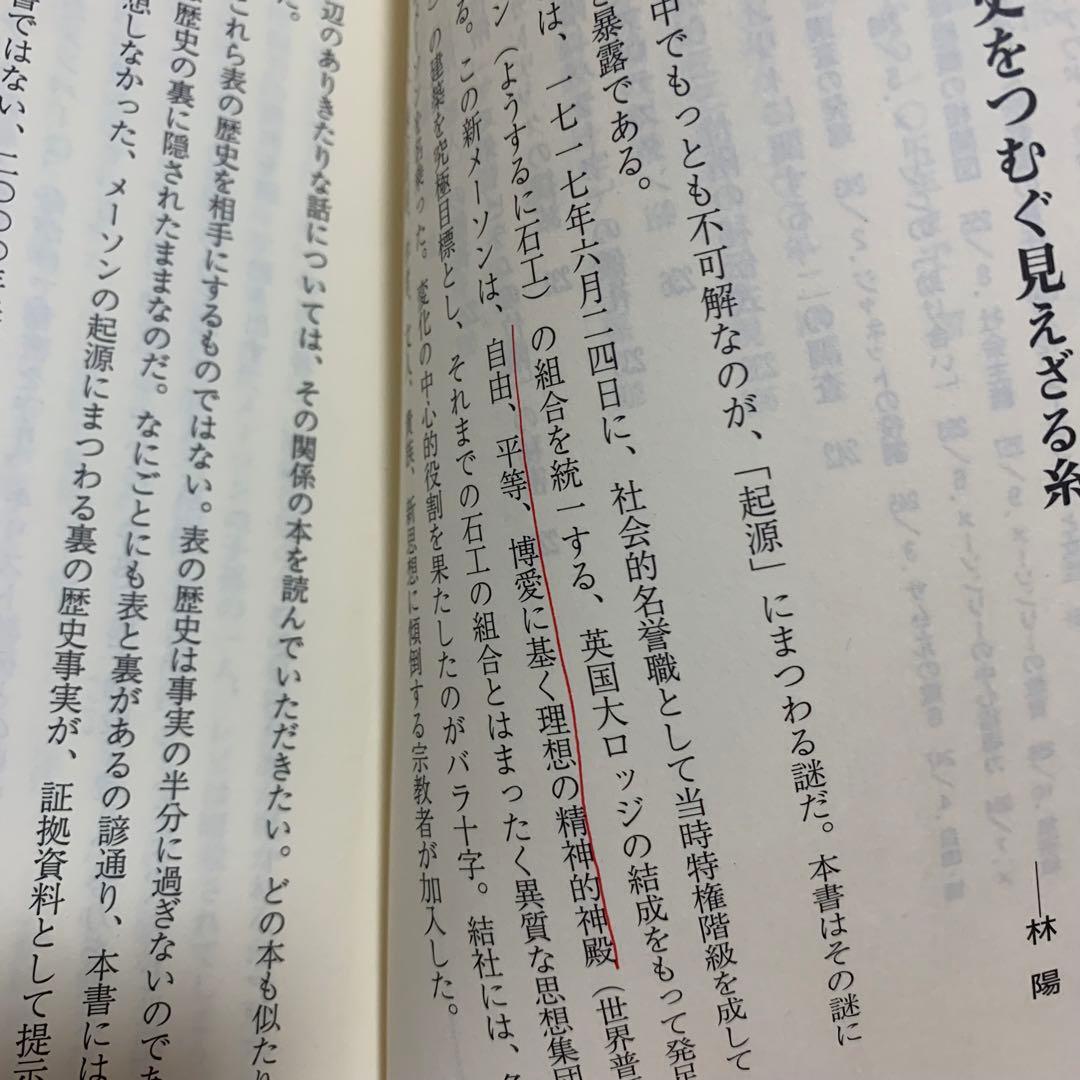 史をつむぐ見えざる糸
──林 陽
中でもっとも不可解なのが、「起源」にまつわる謎だ。本書はその謎に
暴露である。
は、一七一七年六月二四日に、社会的名誉職として当時特権階級を成して
ン（ようするに石工）の組合を統一する、英国大ロッジの結成をもって発足
る。この新メーソンは、自由、平等、博愛に基く理想の精神的神殿（世界普
の建築を究極目標とし、それまでの石工の組合とはまったく異質な思想集団
ーソンを名乗った。変化の中心的役割を果たしたのがバラ十字。結社には、
文人、貴族、新思想に傾倒する宗教者が加入した。
辺のありきたりな話については、その関係の本を読んでいただきたい。どの本も似たり
た。
これら表の歴史を相手にするものではない。表の歴史は事実の半分に過ぎないので
歴史の裏に隠されたままなのだ。なにごとにも表と裏があるの諺通り、本書には
想しなかった、メーソンの起源にまつわる裏の歴史事実が、証拠資料として提示
書ではない、二〇〇〇年